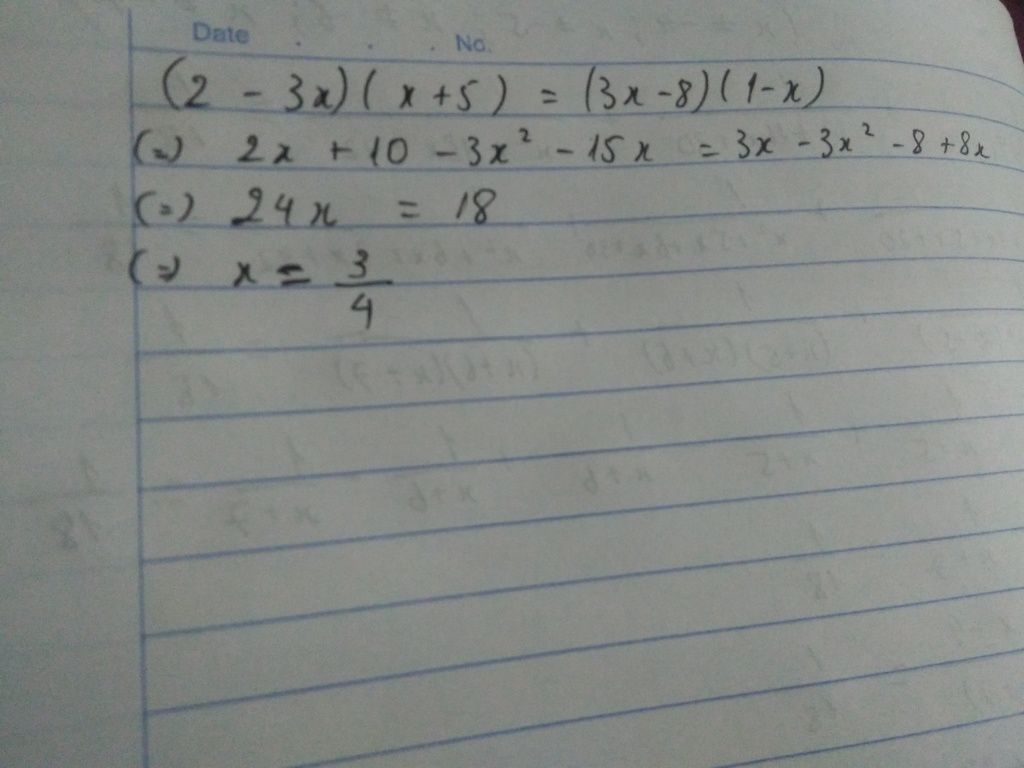 Date . . . No.
(2 - 3x)(x+5) = (3x-8)(1-x)
(=) 2x + 10 - 3x² - 15x = 3x - 3x² - 8 + 8x
(=) 24x = 18
(=) x = 3/4